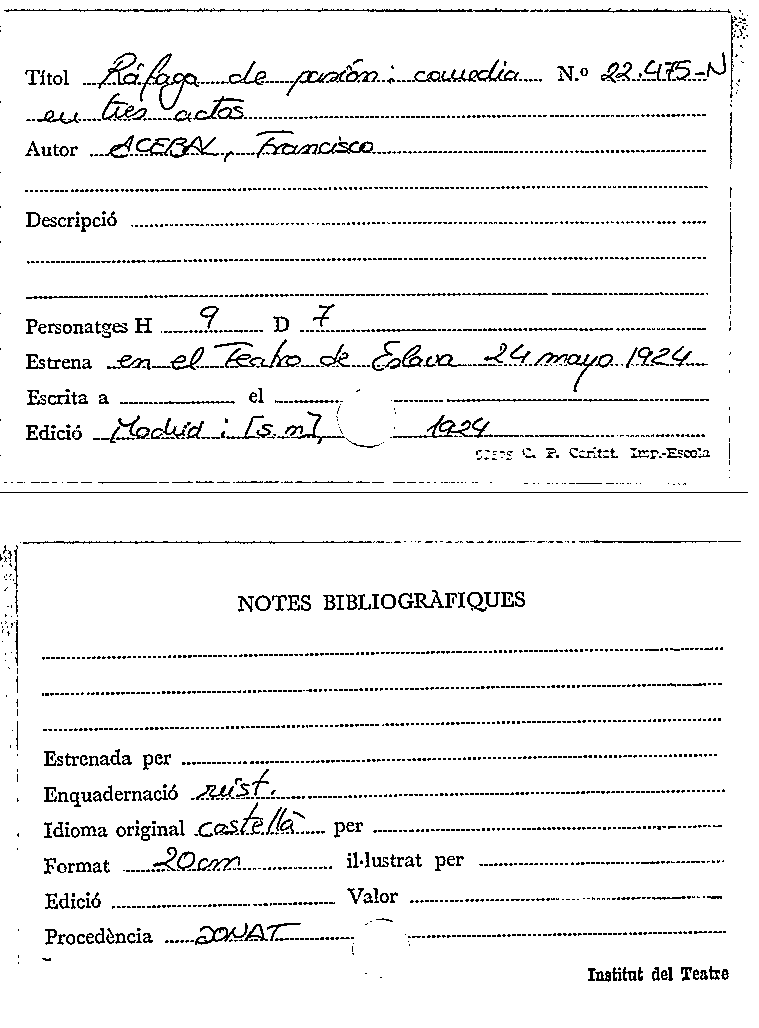 Títol Ráfaga de pasión : comedia N.º 22.475-N
en tres actos
Autor ACEBAL, Francisco
Descripció
Personatges H 9 D 7
Estrena en el Teatro de Eslava 24 mayo 1924
Escrita a el
Edició Madrid : [s.n], 1924
C. P. Caritat. Imp.-Escola
NOTES BIBLIOGRÀFIQUES
Estrenada per
Enquadernació rúst.
Idioma original castellà per
Format 20cm il·lustrat per
Edició Valor
Procedència DONAT
Institut del Teatre